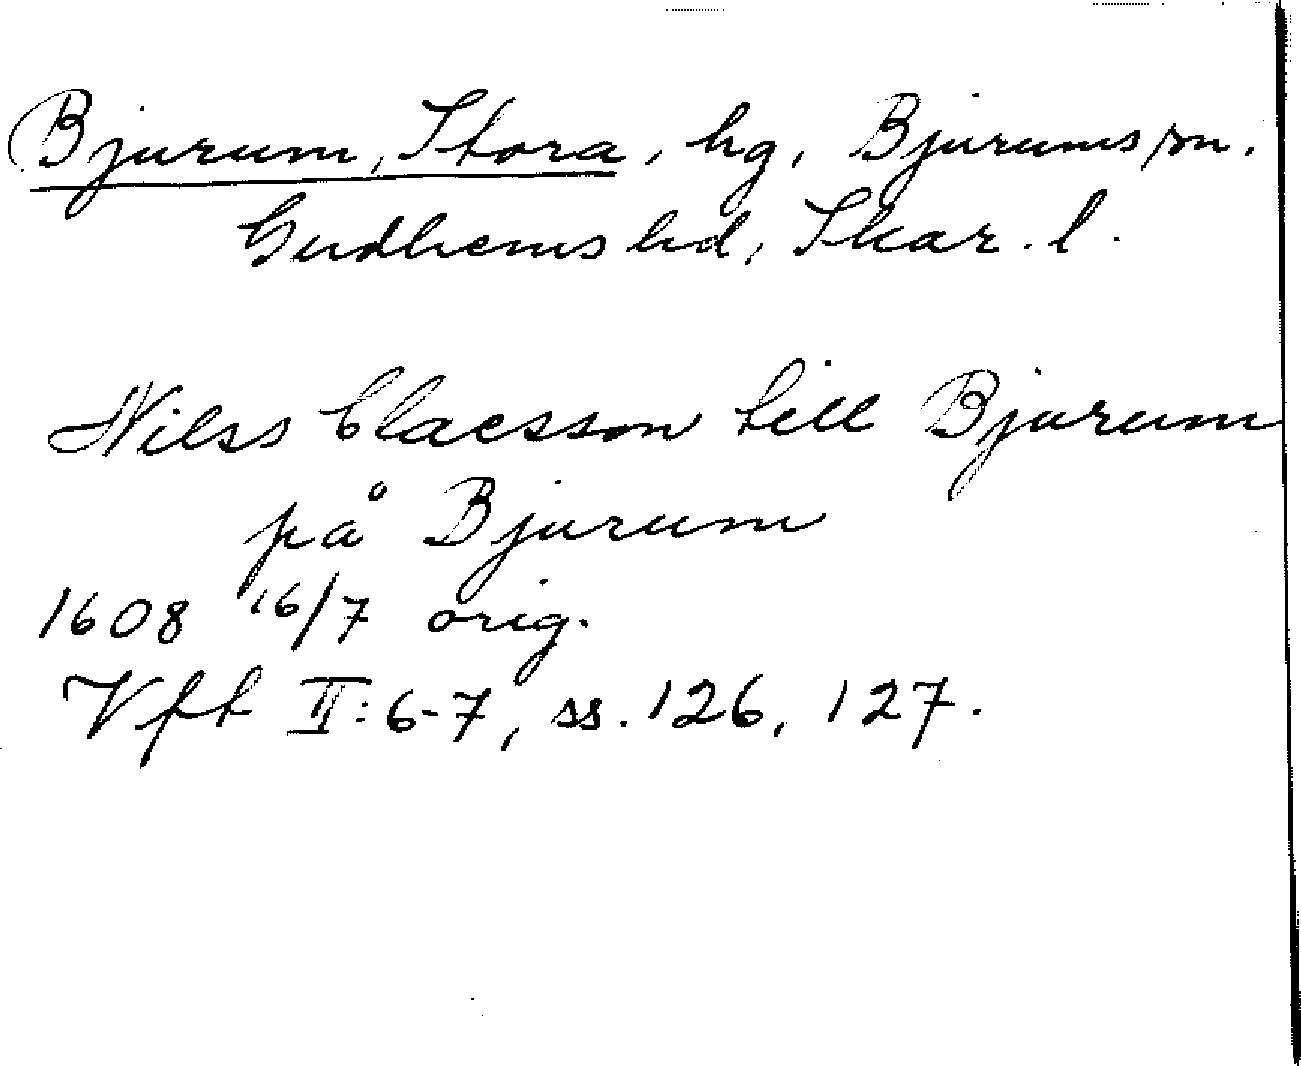 Bjurum, Stora, hg, Bjurums sn.
Gudhems hd, Skar. l.
Nilss Claesson till Bjurum
på Bjurum
1608 16/7 orig.
Vfft II:6-7, ss. 126, 127.